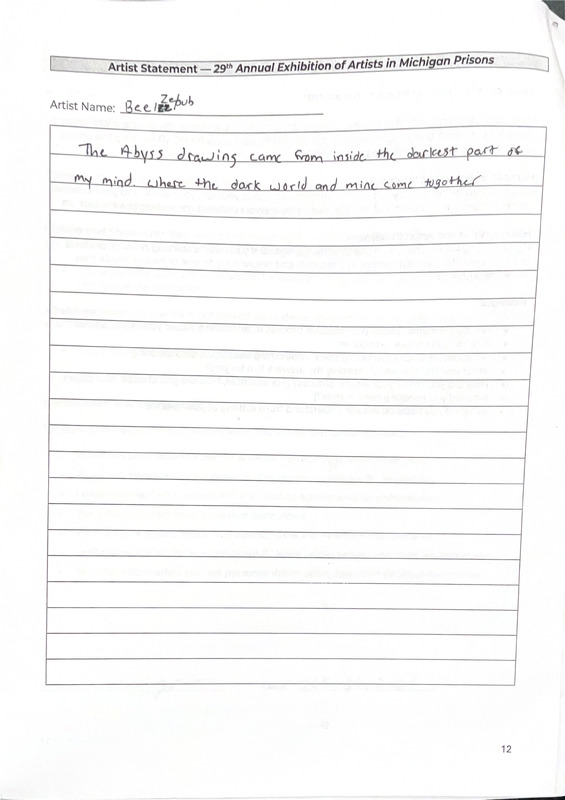 Artist Statement — 29th Annual Exhibition of Artists in Michigan Prisons
Artist Name: Beelzebub
The Abyss drawing came from inside the darkest part of
my mind. where the dark world and mine come together
12